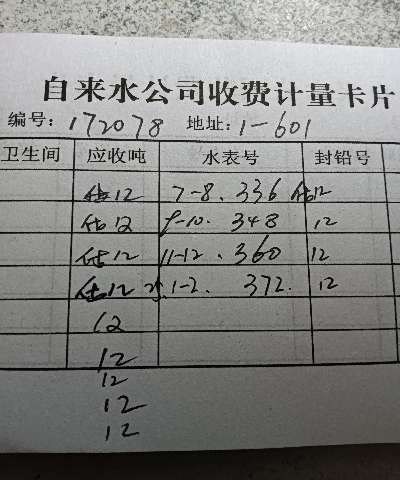 自来水公司收费计量卡片
编号: 172078 地址: 1-601
卫生间 应收吨 水表号 封铅号
估12 7-8. 336 估12
估12 9-10. 348 12
估12 11-12. 360 12
估12 1-2. 372. 12
12
12
12
12
12